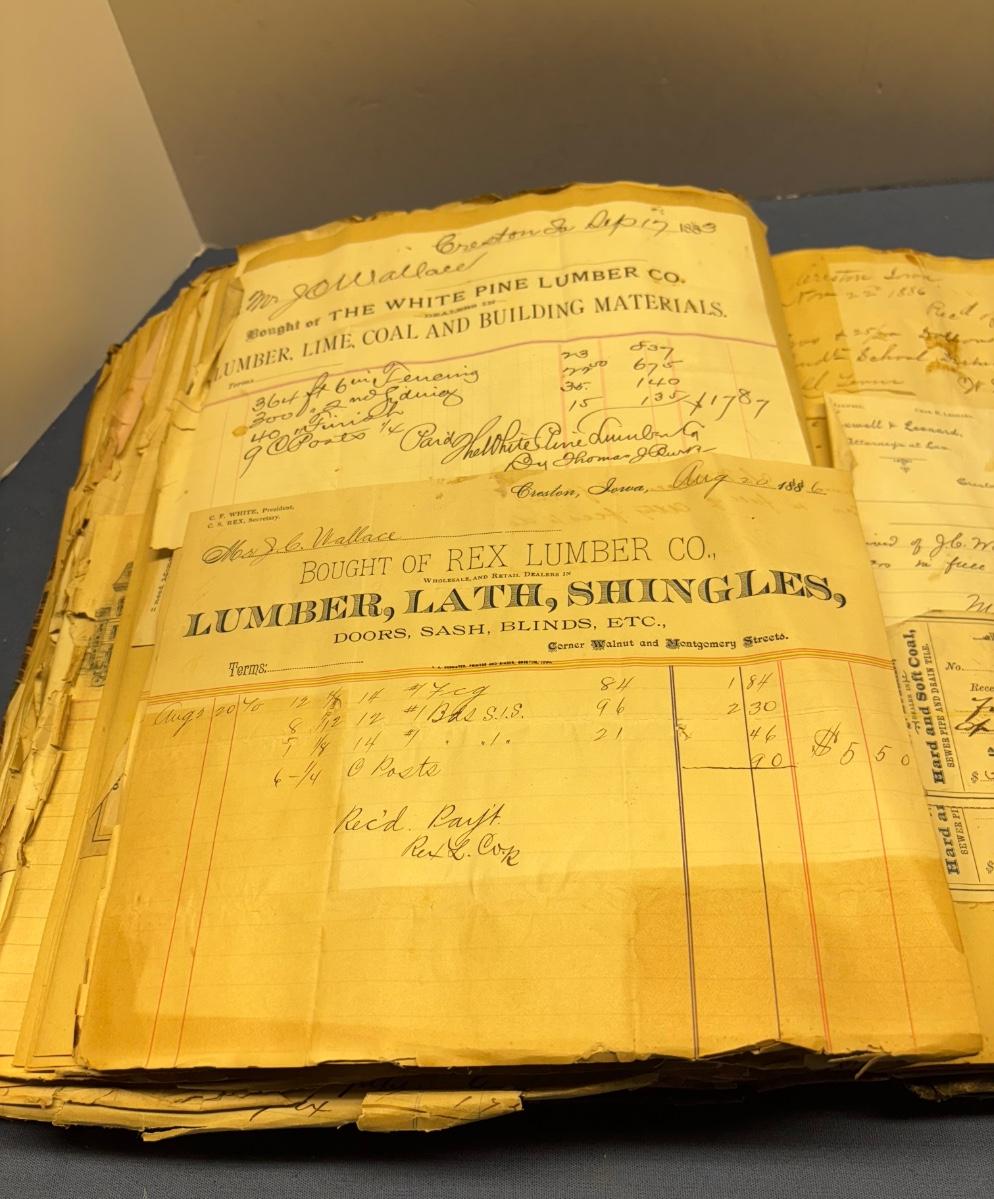 Creston Ia Sep 17 1883
Mr J O Wallace
Bought of THE WHITE PINE LUMBER CO.
DEALERS IN
LUMBER, LIME, COAL AND BUILDING MATERIALS.
Terms
364 ft 6 in Fencing 23 837
300 " 2nd Siding 22 50 675
40 " Finish 35 140
9 C Posts 1/4 15 135 $1787
Paid The White Pine Lumber Co
By Thomas J
C. F. WHITE, President.
C. S. REX, Secretary.
Creston, Iowa, Aug 20 1886
Mr J. C. Wallace
BOUGHT OF REX LUMBER CO.,
WHOLESALE AND RETAIL DEALERS IN
LUMBER, LATH, SHINGLES,
DOORS, SASH, BLINDS, ETC.,
Corner Walnut and Montgomery Streets.
Terms:
Aug 20 12 14 #1 Fcg 84 1 84
8 1/12 12 #1 Bds S.1.S. 96 2 30
5 1/8 14 #1 " " 21 46 $5 50
6 - 1/4 C Posts 90
Rec'd. Pay't.
Rex L. Co
Creston Iowa
Nov 22d 1886
Rec'd
School
& Leonard,
Attorneys at Law
of J. C. W
in full
Hard and Soft Coal,
SEWER PIPE AND DRAIN TILE.
No.
Rece
$
Hard a
SEWER PI